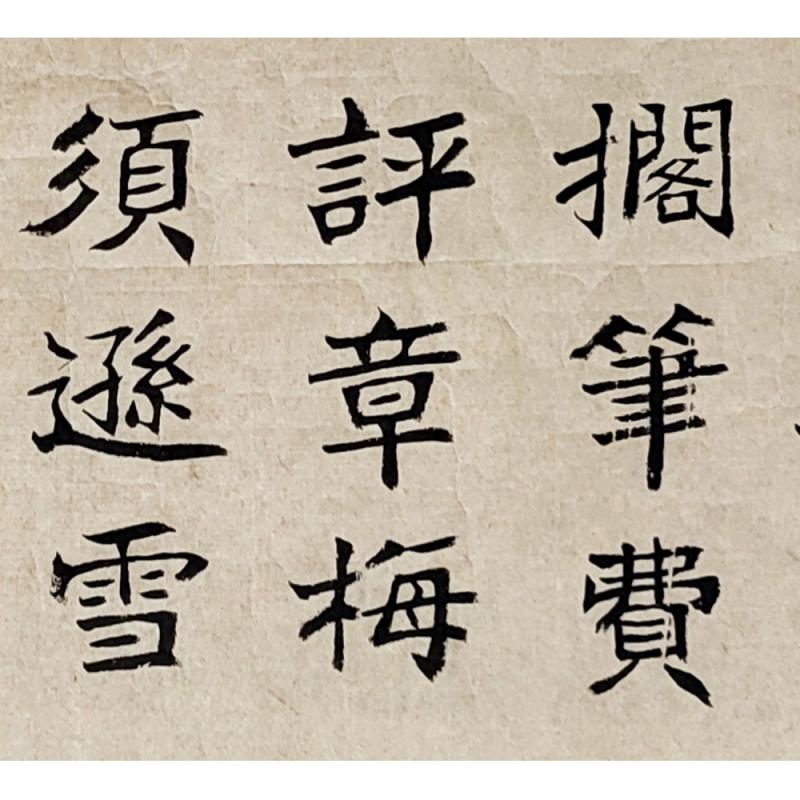 擱筆費
評章梅
須遜雪